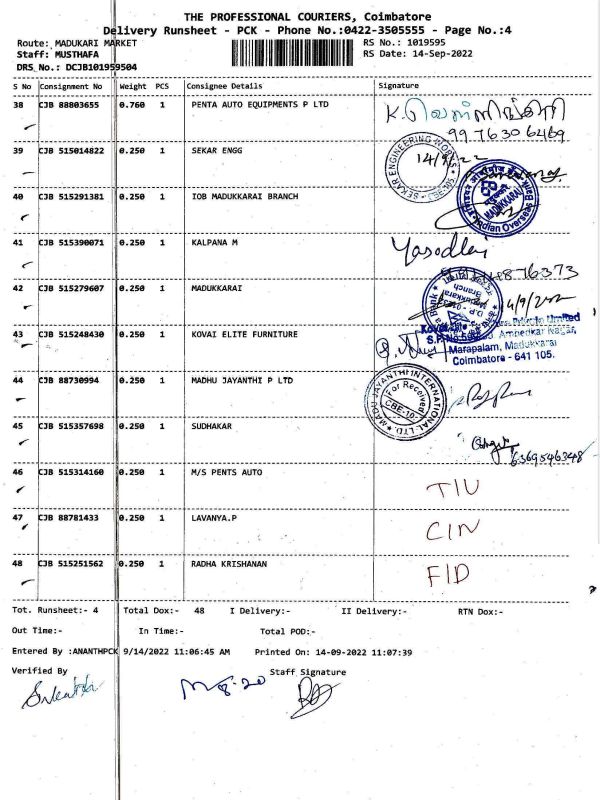 THE PROFESSIONAL COURIERS, Coimbatore
Delivery Runsheet - PCK - Phone No.:0422-3505555 - Page No.:4
Route: MADUKARI MARKET RS No.: 1019595
Staff: MUSTHAFA RS Date: 14-Sep-2022
DRS No.: DCJB101959504
S No Consignment No Weight PCS Consignee Details Signature
38 CJB 88803655 0.760 1 PENTA AUTO EQUIPMENTS P LTD
39 CJB 515014822 0.250 1 SEKAR ENGG
SEKAR ENGINEERING WORKS CBE-105
40 CJB 515291381 0.250 1 IOB MADUKKARAI BRANCH
MADUKKARAI
Indian Overseas Bank
41 CJB 515390071 0.250 1 KALPANA M
42 CJB 515279607 0.250 1 MADUKKARAI
43 CJB 515248430 0.250 1 KOVAI ELITE FURNITURE
Private Limited
Ambedkar Nagar,
Marapalam, Madukkarai
Coimbatore - 641 105.
44 CJB 88730994 0.250 1 MADHU JAYANTHI P LTD
MADU JAYANTHI INTERNATIONAL LTD.
For Received
45 CJB 515357698 0.250 1 SUDHAKAR
46 CJB 515314160 0.250 1 M/S PENTS AUTO
47 CJB 88781433 0.250 1 LAVANYA.P CIN
48 CJB 515251562 0.250 1 RADHA KRISHANAN
Tot. Runsheet:- 4 Total Dox:- 48 I Delivery:- II Delivery:- RTN Dox:-
Out Time:- In Time:- Total POD:-
Entered By :ANANTHPCK 9/14/2022 11:06:45 AM Printed On: 14-09-2022 11:07:39
Verified By Staff Signature